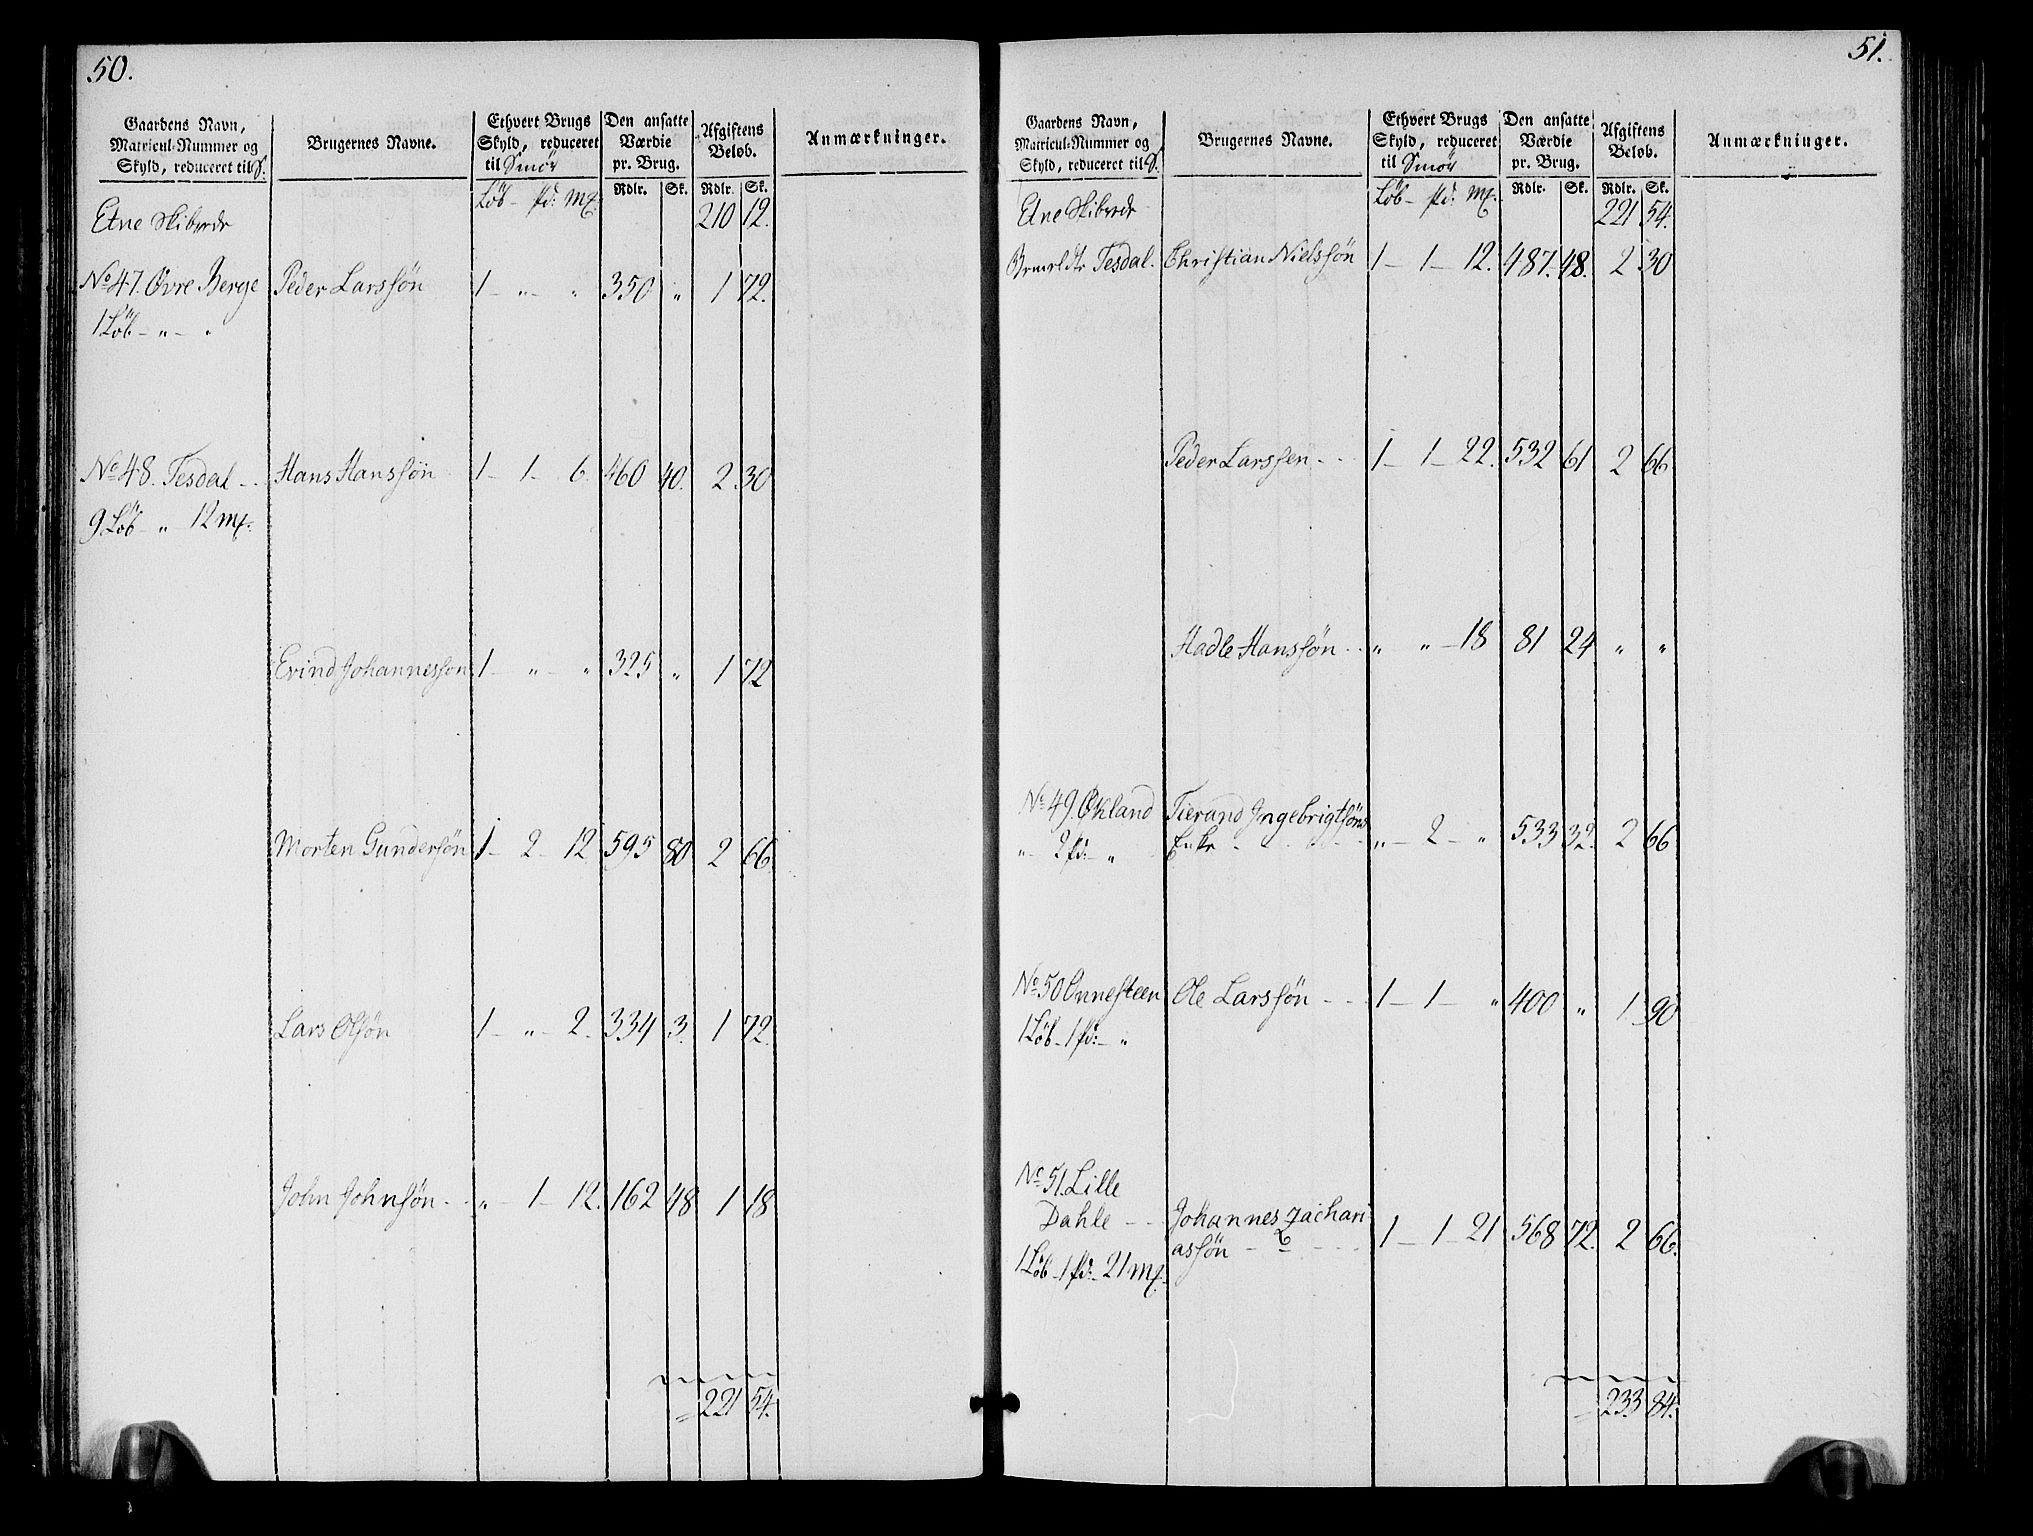 50.
Gaardens Navn, Matricul-Nummer og Skyld, reduceret til S. | Brugernes Navne. | Ethvert Brugs Skyld, reduceret til Smør | Den ansatte Værdie pr. Brug. | Afgiftens Beløb. | Anmærkninger.
Löb – pd: mk. | Rdlr. | Sk. | Rdlr. | Sk.
Etne Skibrede 210 12.
No 47. Øvre Berge Peder Larssøn 1 – „ – „ 350 „ 1 72.
1 Löb – „ – „
No 48. Tesdal - - Hans Hanssøn 1 – 1 – 6. 460 40. 2 30
9 Löb – „ 12 mk.
Evind Johannesson 1 – „ – „ 325 „ 1 72
Morten Gundersøn 1 – 2 – 12 595 80 2 66.
Lars Olsøn 1 – „ – 2. 334 3. 1 72.
John Johnsøn - - „ – 1 – 12. 162 48 1 18
= 221 54.
51.
Gaardens Navn, Matricul-Nummer og Skyld, reduceret til S. | Brugernes Navne. | Ethvert Brugs Skyld, reduceret til Smør | Den ansatte Værdie pr. Brug. | Afgiftens Beløb. | Anmærkninger.
Löb – pd: mk. | Rdlr. | Sk. | Rdlr. | Sk.
Etne Skibrede 221 54.
Tesdal. Christian Nielssøn 1 – 1 – 12. 487. 48. 2 30
Peder Larssen - - 1 – 1 – 22. 532 61 2 66
Hadle Hanssøn - - „ „ – 18 81 24 „ „
No 49. Økland Tierand Ingebrigtsøns
„ – 2 pd: – „ Enke - - - „ – 2 – „ 533 32. 2 66
No 50 Onnesteen Ole Larssøn - - 1 – 1 – „ 400 „ 1 90
1 Löb – 1 pd: – „
No 51. Lille
Dahle - - Johannes Zachari-
assøn - - - 1 – 1 – 21 568 72. 2 66.
1 Löb – 1 pd: – 21 mk.
= 233 84.